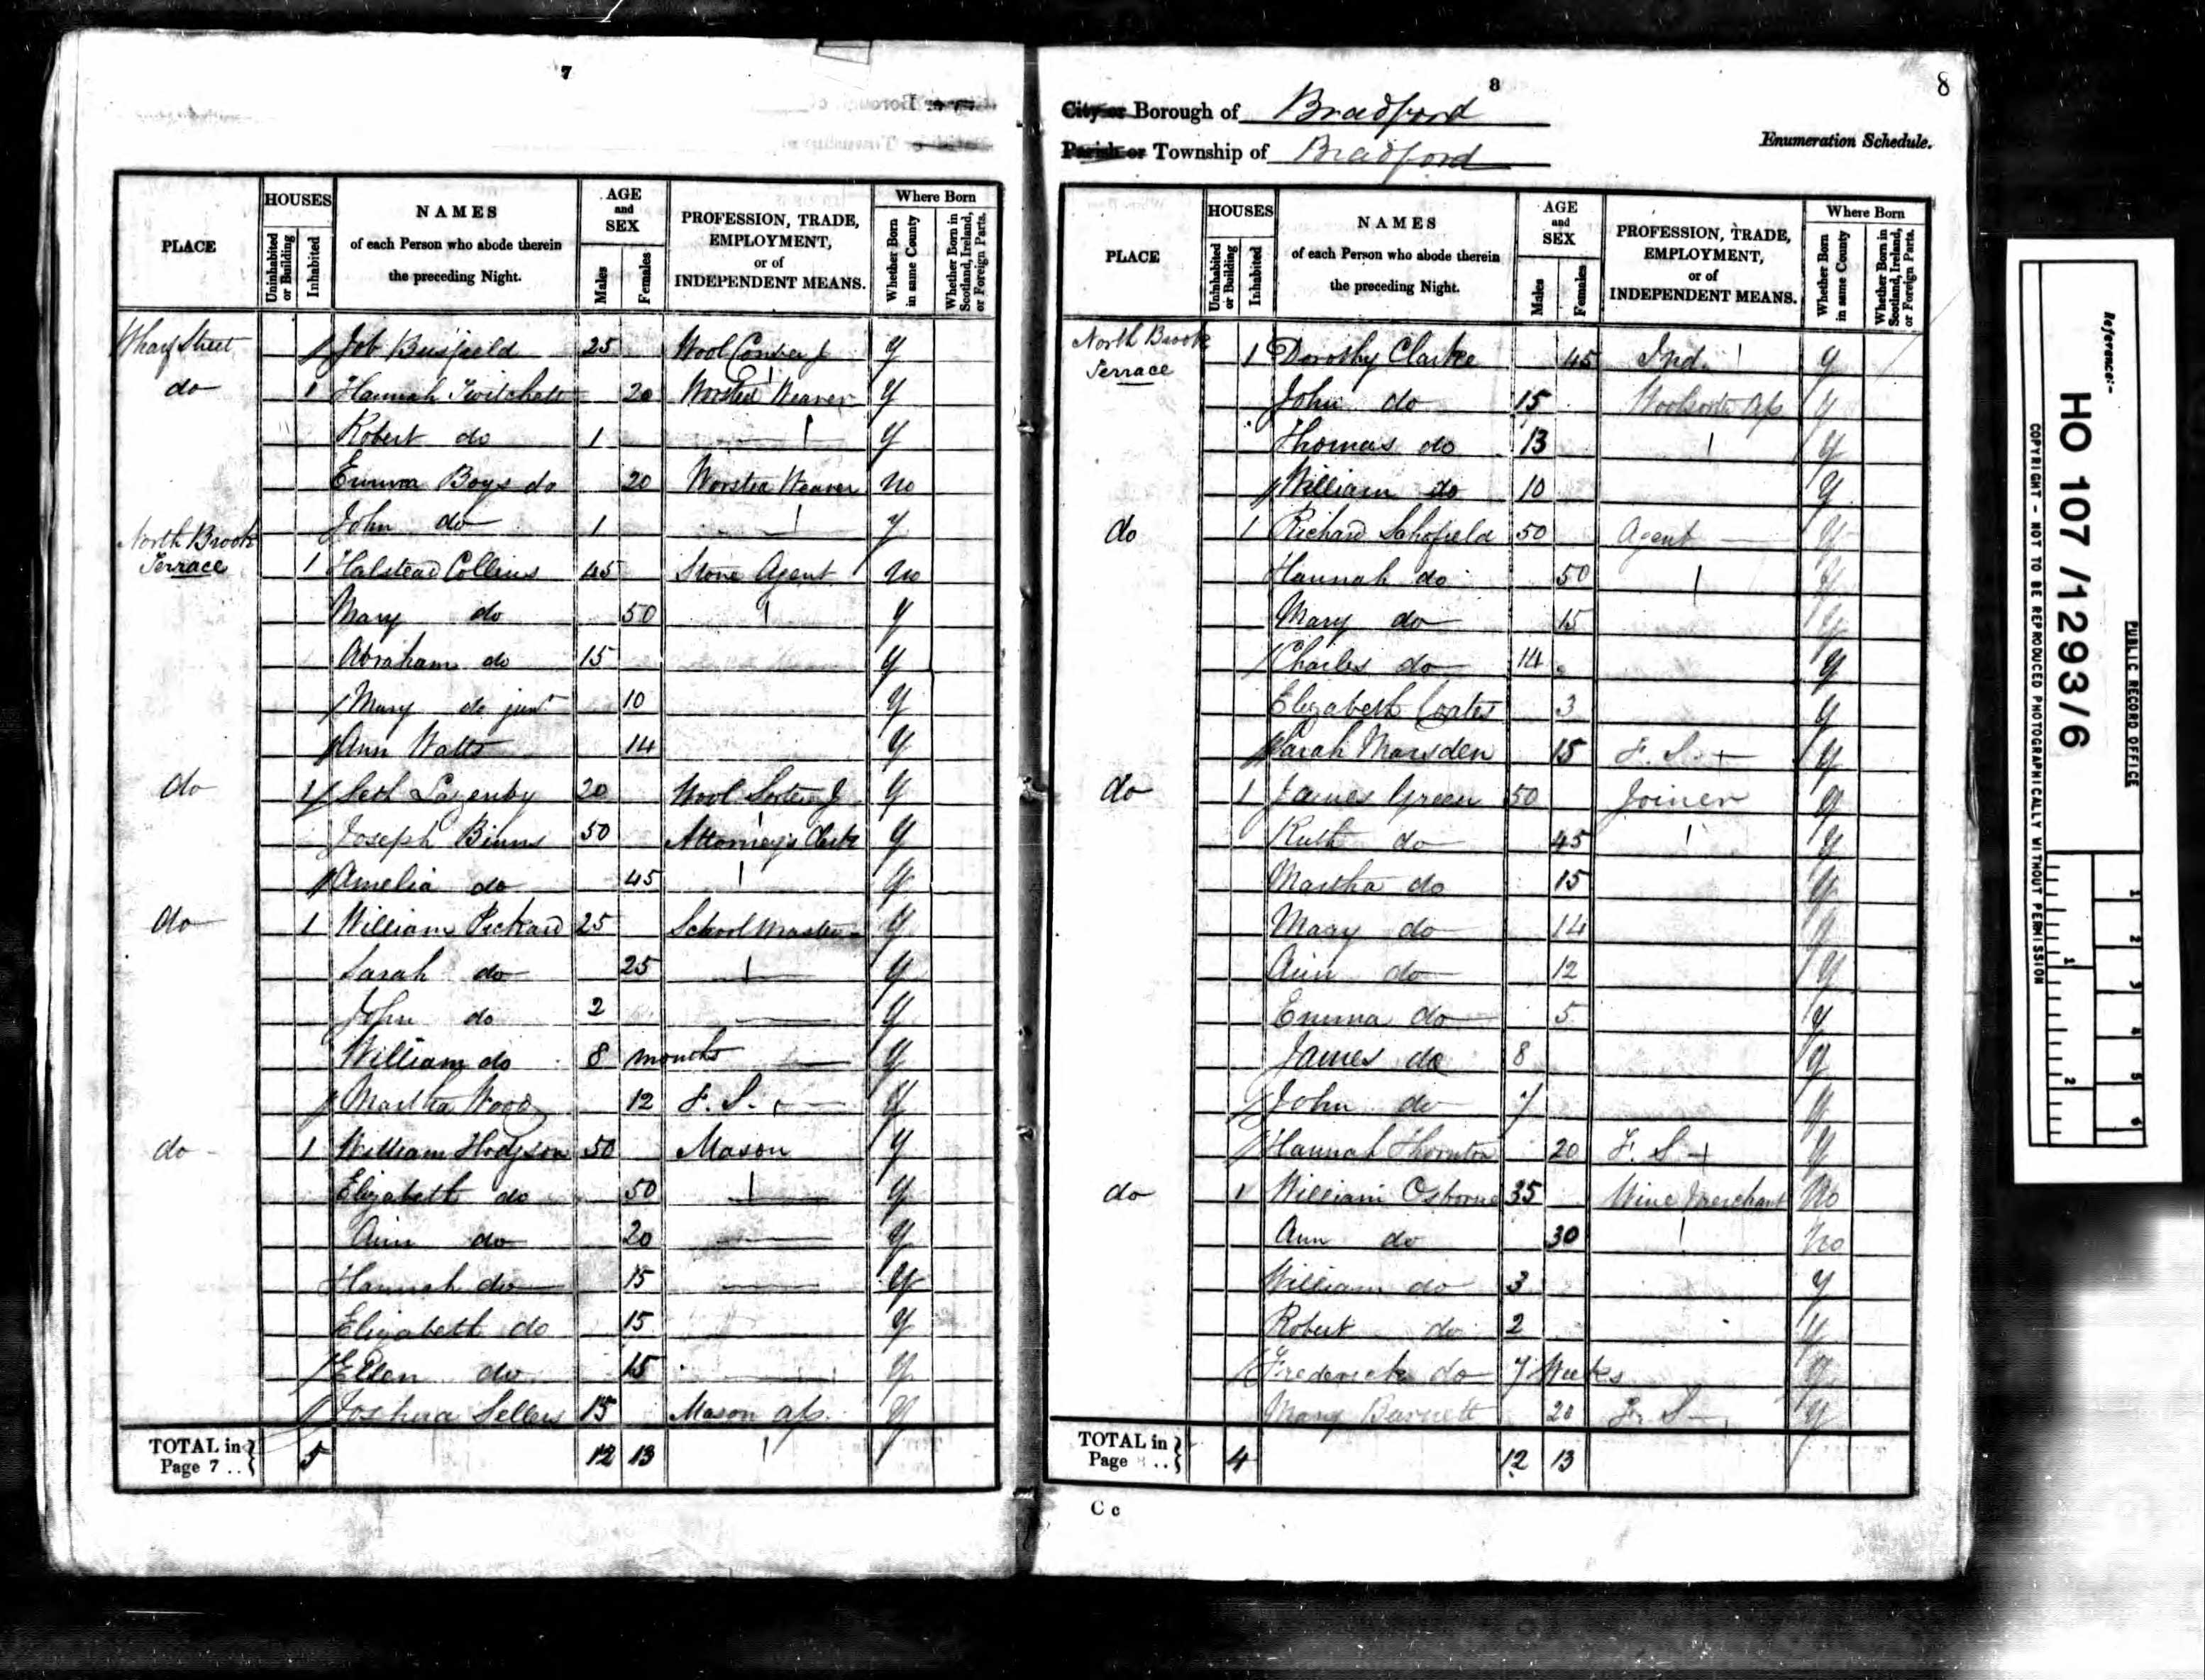 7
PLACE
HOUSES
Uninhabited or Building
Inhabited
NAMES
of each Person who abode therein
the preceding Night.
AGE
and
SEX
Males
Females
PROFESSION, TRADE,
EMPLOYMENT,
or of
INDEPENDENT MEANS.
Where Born
Whether Born in same County
Whether Born in Scotland, Ireland, or Foreign Parts.
Wharf Street Job Busfield 25 Wool Comber J Y
do 1 Hannah 20 Worsted Weaver Y
Robert do 1 Y
Emma Boys do 20 Worsted Weaver No
John do 1 Y
North Brook
Terrace 1 Halstead Collins 45 Stone Agent No
Mary do 50 Y
Abraham do 15 Y
Mary do junr 10 Y
Ann Watts 14 Y
do 1 Seth Lazenby 20 Wool Sorter J Y
Joseph Binns 50 Attorney's Clerk Y
Amelia do 45 Y
do 1 William Pickard 25 School Master Y
Sarah do 25 Y
John do 2 Y
William do 8 months Y
Martha Wood 12 F. S. Y
do 1 William Hodgson 50 Mason Y
Elizabeth do 50 Y
Ann do 20 Y
Hannah do 15 Y
Elizabeth do 15 Y
Ellen do 15 Y
Joshua Sellers 15 Mason ap. Y
TOTAL in Page 7 .. 5 12 13
8
8
City or Borough of Bradford
Parish or Township of Bradford
Enumeration Schedule.
PLACE
HOUSES
Uninhabited or Building
Inhabited
NAMES
of each Person who abode therein
the preceding Night.
AGE
and
SEX
Males
Females
PROFESSION, TRADE,
EMPLOYMENT,
or of
INDEPENDENT MEANS.
Where Born
Whether Born in same County
Whether Born in Scotland, Ireland, or Foreign Parts.
North Brook
Terrace 1 Dorothy Clarke 45 Ind. Y
John do 15 Woolsorter Ap Y
Thomas do 13 Y
William do 10 Y
do 1 Richard Schofield 50 Agent Y
Hannah do 50 Y
Mary do 15 Y
Charles do 14 Y
Elizabeth Coates 3 Y
Sarah Marsden 15 F. S. Y
do 1 James Green 50 Joiner Y
Ruth do 45 Y
Martha do 15 Y
Mary do 14 Y
Ann do 12 Y
Emma do 5 Y
James do 8 Y
John do 7 Y
Hannah Thornton 20 F. S Y
do 1 William Osborne 35 Wine Merchant No
Ann do 30 No
William do 3 Y
Robert do 2 Y
Frederick do 7 Weeks Y
Mary Barnett 20 F. S Y
TOTAL in Page .. 4 12 13
C c
Reference:-
HO 107/1293/6
PUBLIC RECORD OFFICE
COPYRIGHT - NOT TO BE REPRODUCED PHOTOGRAPHICALLY WITHOUT PERMISSION
1
2
1
2
3
4
5
6